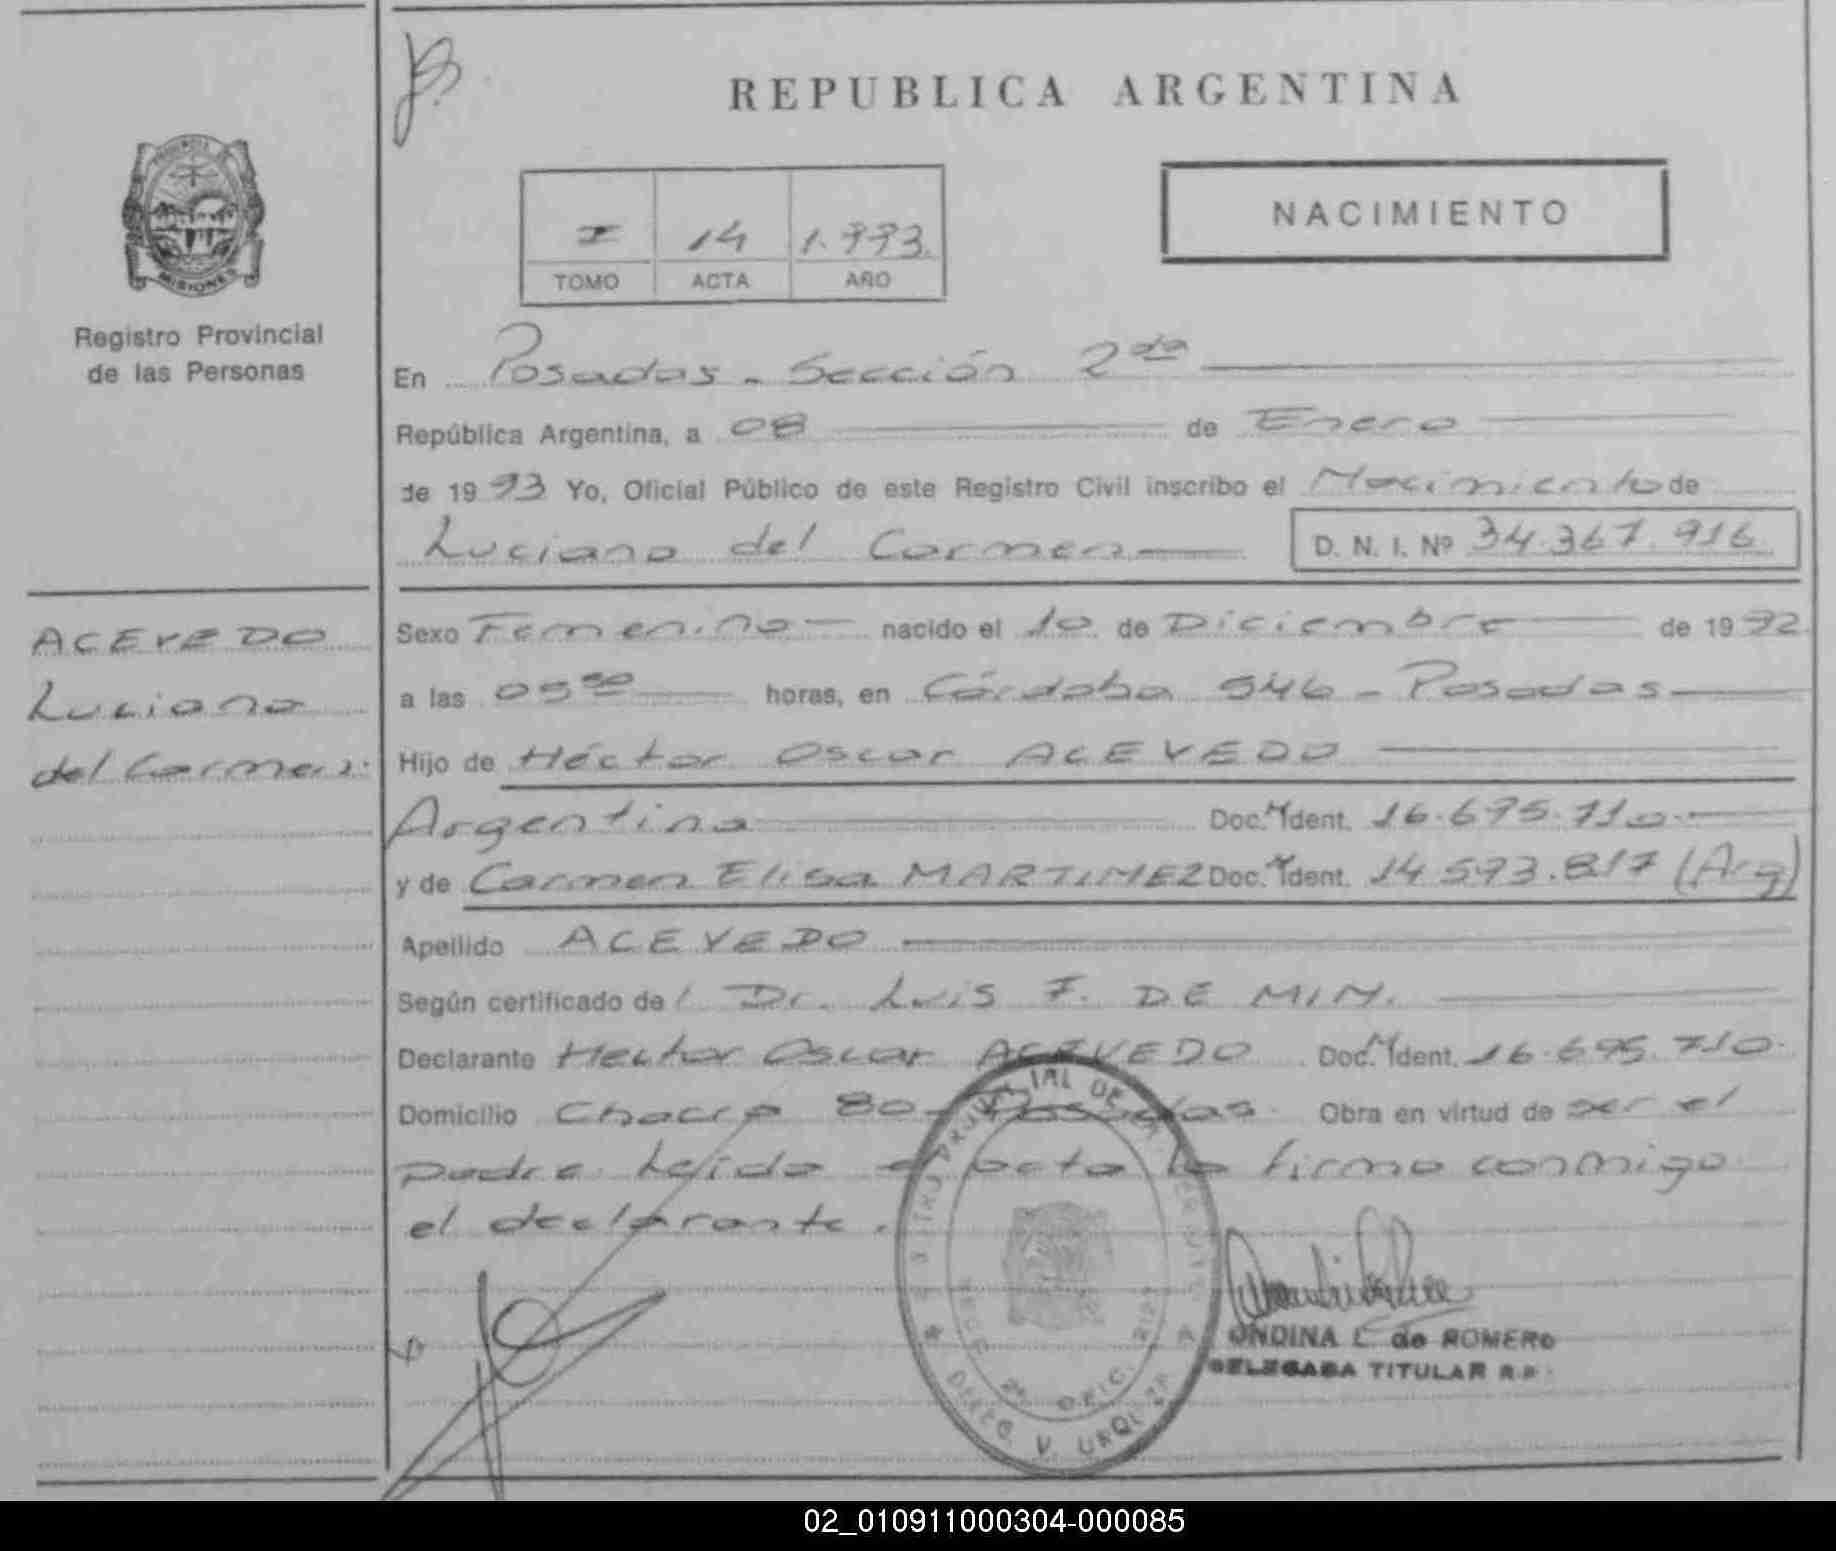 REPUBLICA ARGENTINA
PROVINCIA DE
MISIONES
Registro Provincial
de las Personas
I 14 1.993.
TOMO ACTA AÑO
NACIMIENTO
En Posadas - Sección 2da
República Argentina, a 08 de Enero
de 1993 Yo, Oficial Público de este Registro Civil inscribo el Nacimiento de
Luciana del Carmen D. N. I. Nº 34.367.916
ACEVEDO
Luciana
del Carmen
Sexo Femenino nacido el 10 de Diciembre de 1992
a las 05 horas, en Córdoba 546 - Posadas
Hijo de Héctor Oscar ACEVEDO
Argentina Doc. M Ident. 16.695.710
y de Carmen Elisa MARTINEZ Doc. M Ident. 14.593.817 (Arg)
Apellido ACEVEDO
Según certificado de Dr. Luis F. DE MIM.
Declarante Hector Oscar ACEVEDO Doc. M Ident. 16.695.710.
Domicilio Chacra 80 - Posadas. Obra en virtud de ser el
padre. Leida el acta la firma conmigo
el declarante.
DELEG. V. URQUIZA
ONDINA L. de ROMERO
DELEGADA TITULAR R.P.
02_010911000304-000085